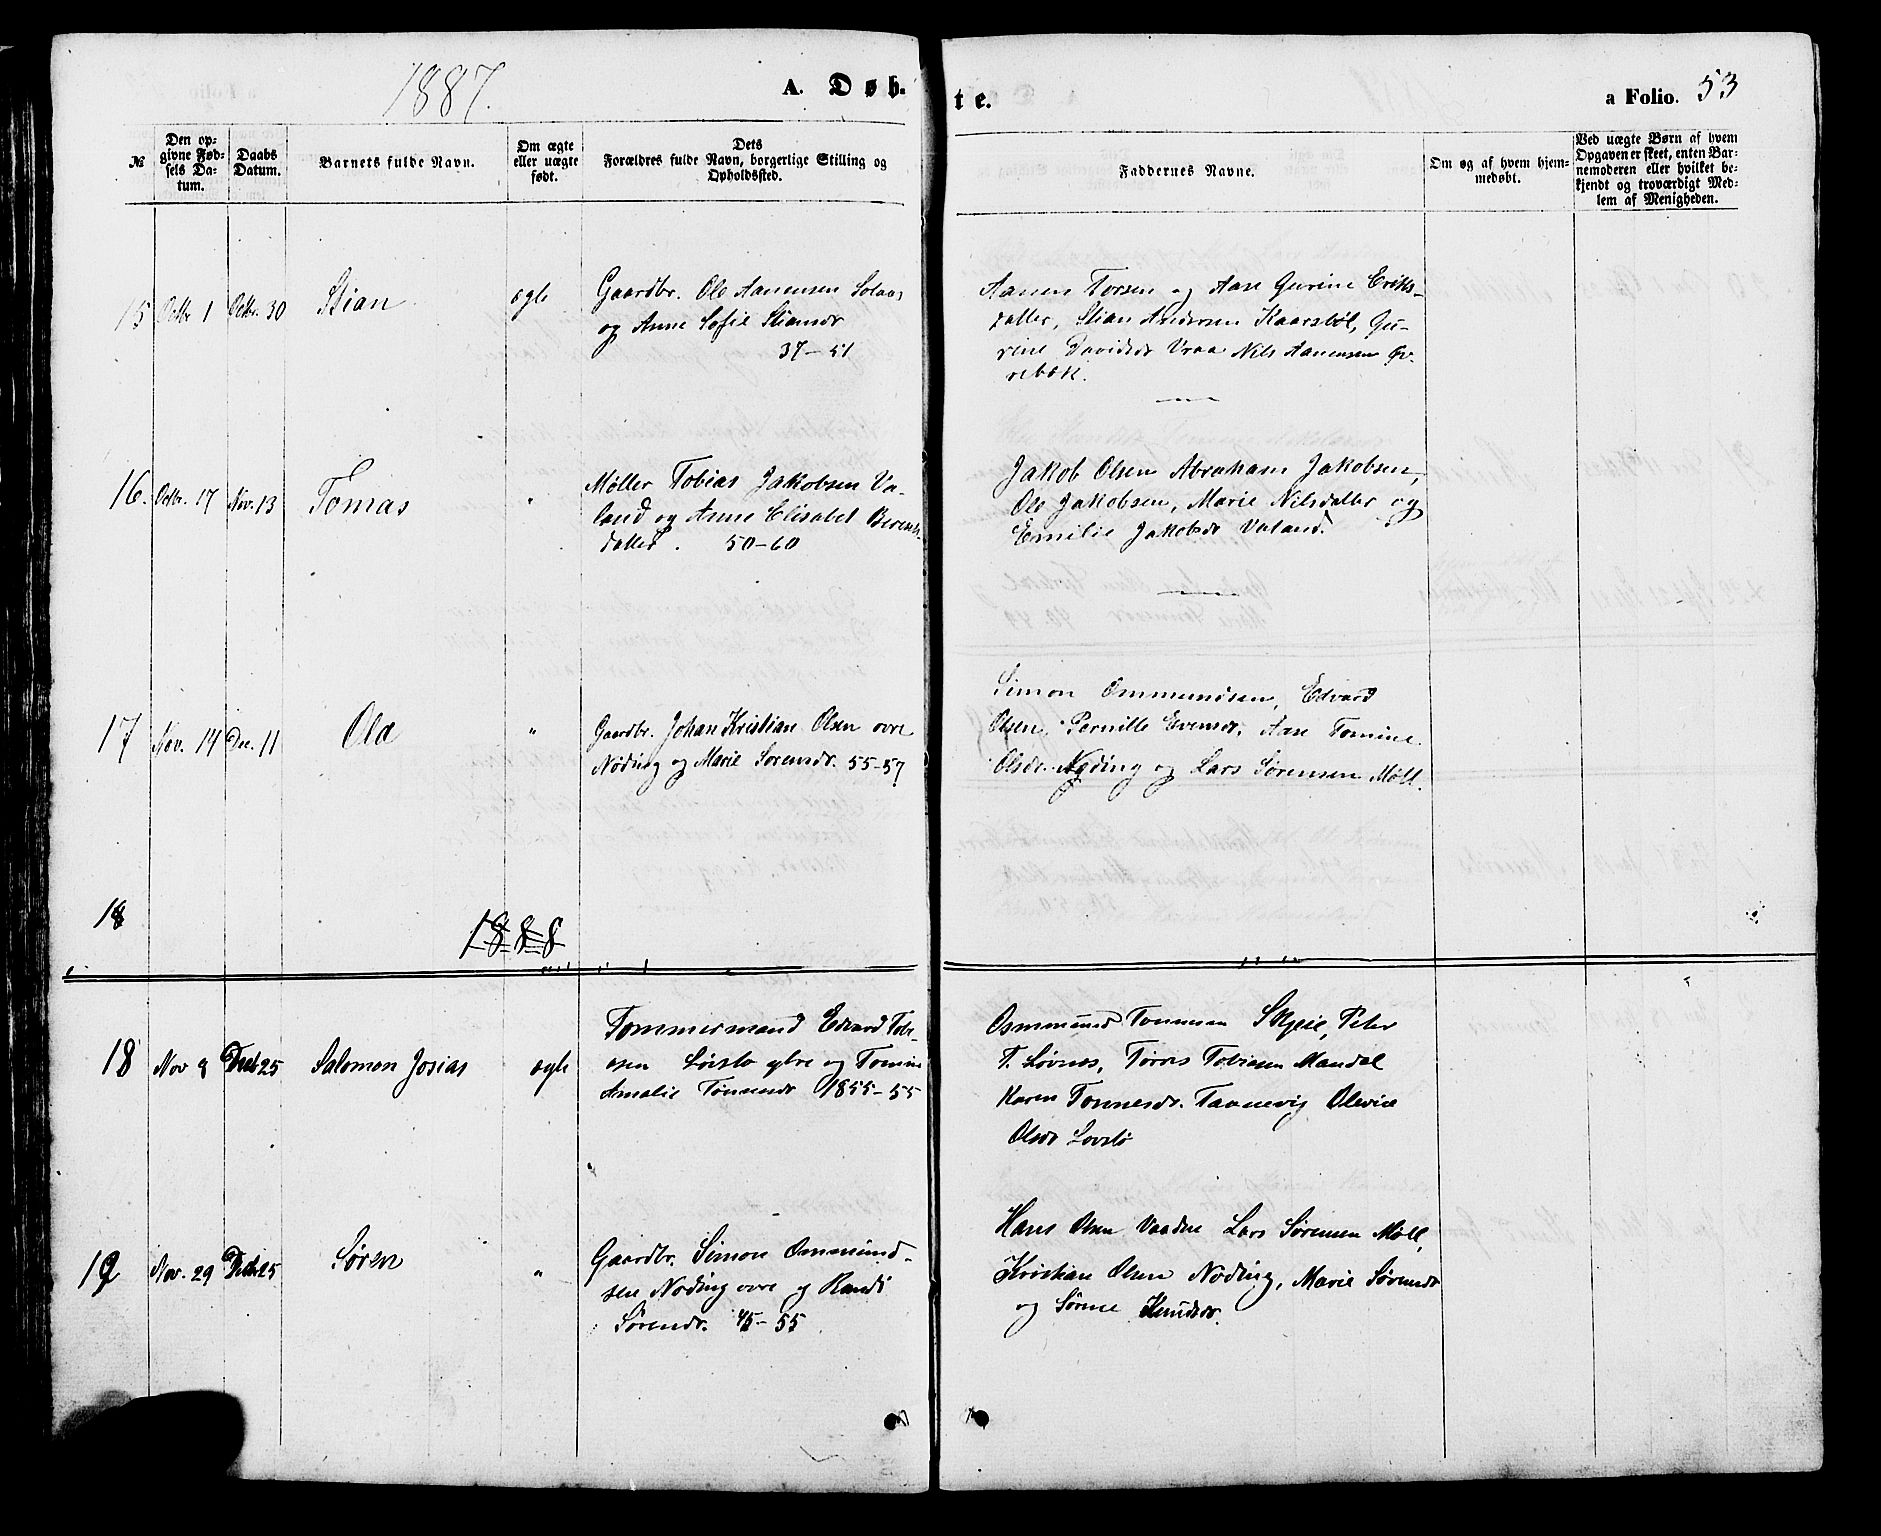 1887.
A. Døb-
№
Den op-
givne Fød-
sels Da-
tum.
Daabs
Datum.
Barnets fulde Navn.
Om ægte
eller uægte
født.
Dets
Forældres fulde Navn, borgerlige Stilling og
Opholdssted.
te.
a Folio. 53
Faddernes Navne.
Om og af hvem hjem-
medøbt.
Ved uægte Børn af hvem
Opgaven er skeet, enten Bar-
nemoderen eller hvilket be-
kjendt og troværdigt Med-
lem af Menigheden.
15 Octbr 1 Octbr. 30 Stian ægte
Gaardbr. Ole Aanensen Solaas
og Anne Sofie Stiansdr
37-51
Aanen Torsen og Aase Gurine Eriks-
datter, Stian Andersen Kaarstøl, Gu-
rine Davidsdr Vraa Nils Aanensen Øv-
rebøtl.
16. Octbr. 17 Nov. 13 Tomas "
Møller Tobias Jakobsen Va-
land og Anne Elisabet Berents-
datter. 50-60
Jakob Olsen Abraham Jakobsen,
Ole Jakobsen, Marie Nilsdatter og
Emilie Jakobsdr Valand.
17 Nov. 14 Dec. 11 Ola "
Gaardbr. Johan Kristian Olsen øvre
Nøding og Marie Sørensdr. 55-57
Simon Ommundsen, Edvard
Olsen, Pernille Evensdr, Aase Tomine
Olsdr. Nøding og Lars Sørensen Møll.
18
1888
18 Nov 9 Decb 25 Salomon Josias ægte
Tømmermand Edvard Tobi-
asen Løvstø ytre og Tomine
Amalie Tønnesdr 1855-55
Osmmund Tønnesen Skjeie, Peter
T. Løvnes, Tørres Tobiasen Mandal
Karen Tønnesdr. Taanevig Olevine
Olsdr Løvstø
19 Nov. 29 Decb 25 Søren "
Gaardbr. Simon Ommund-
sen Nøding øvre og Randi
Sørensdr. 45-55
Hans Olsen Vaadne Lars Sørensen Møll,
Kristian Olsen Nøding, Marie Sørensdr
og Sørine Knudsdr.